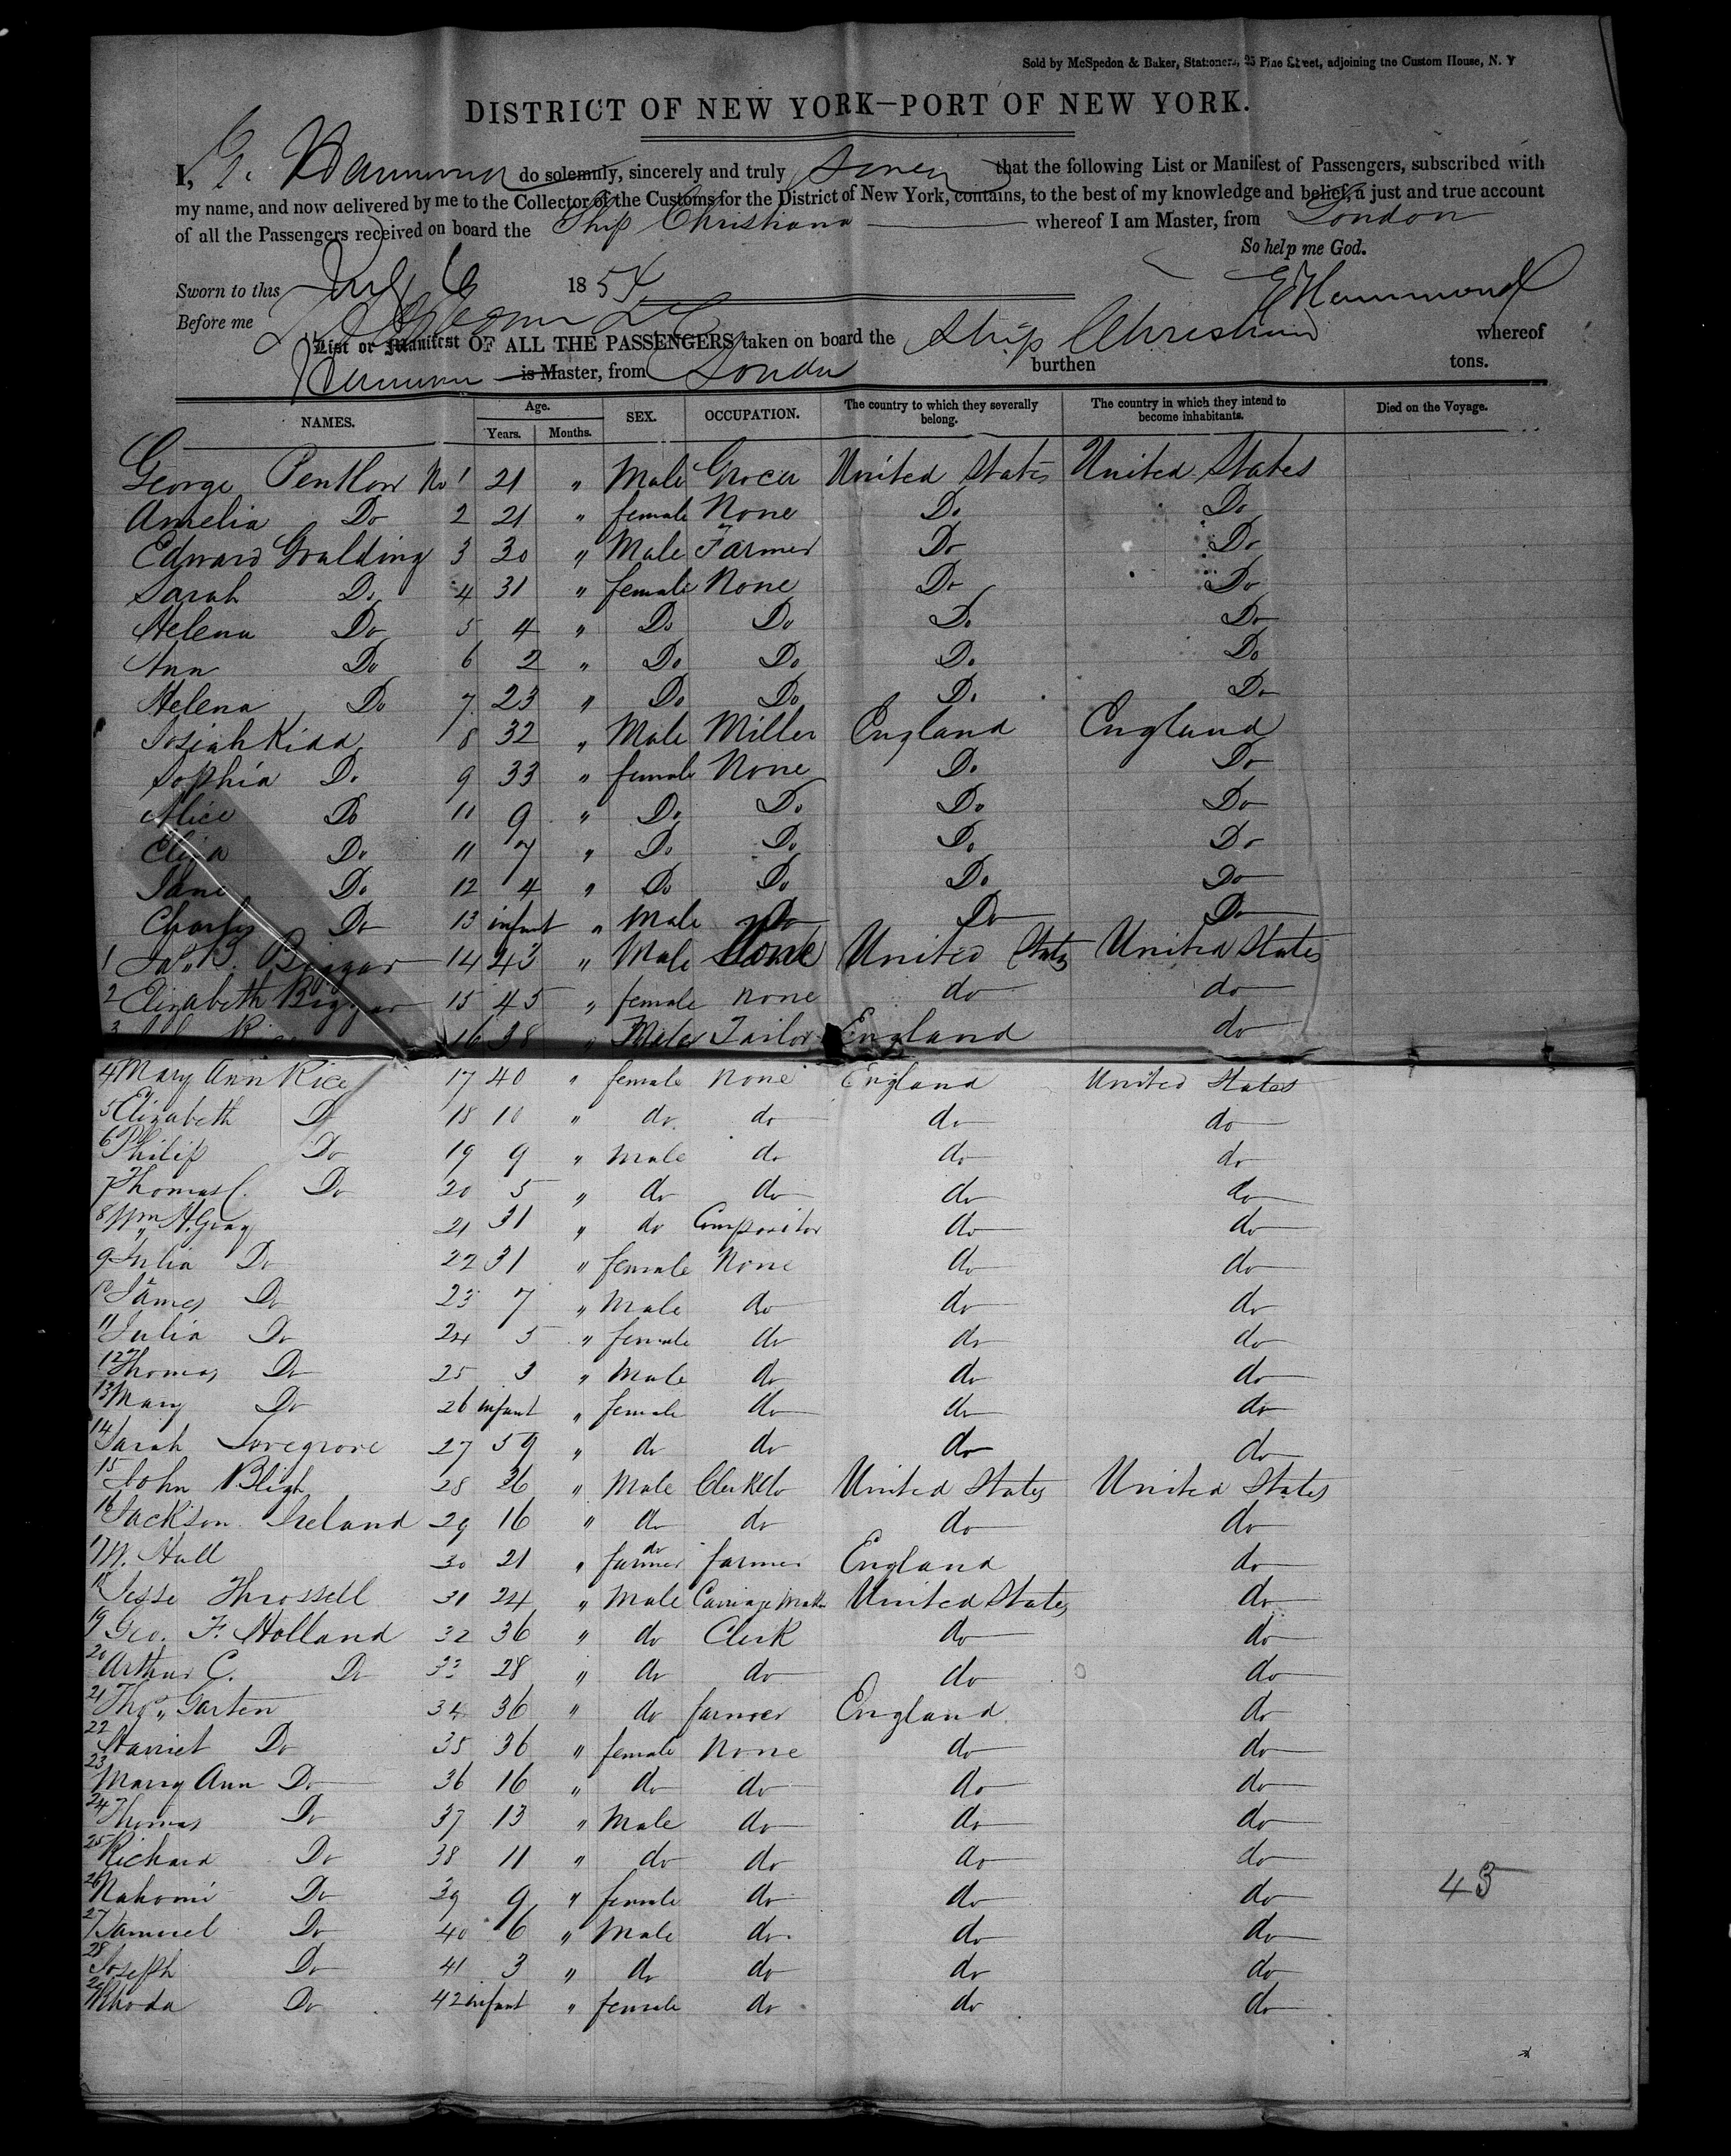 Sold by McSpedon & Baker, Stationers, 25 Pine Street, adjoining the Custom House, N. Y
DISTRICT OF NEW YORK—PORT OF NEW YORK.
I, do solemnly, sincerely and truly swear that the following List or Manifest of Passengers, subscribed with
my name, and now delivered by me to the Collector of the Customs for the District of New York, contains, to the best of my knowledge and belief, a just and true account
of all the Passengers received on board the Ship Christiana whereof I am Master, from London
So help me God.
Sworn to this July 6 1854 E Hammond
Before me
List or Manifest OF ALL THE PASSENGERS taken on board the Ship Christiana whereof
is Master, from London burthen tons.
NAMES. Age. Years. Months. SEX. OCCUPATION. The country to which they severally belong. The country in which they intend to become inhabitants. Died on the Voyage.
George No 1 21 " Male Grocer United States United States
Amelia Do 2 21 " female None Do Do
Edward Goulding 3 30 " Male Farmer Do Do
Sarah Do 4 31 " female None Do Do
Helena Do 5 4 " Do Do Do Do
Ann Do 6 2 " Do Do Do Do
Helena Do 7 23 " Do Do Do Do
Josiah Kidd 8 32 " Male Miller England England
Sophia Do 9 33 " female None Do Do
Alice Do 11 9 " Do Do Do Do
Eliza Do 11 7 " Do Do Do Do
Jane Do 12 4 " Do Do Do Do
Charles Do 13 infant " Male Do Do Do
1 Jas. B. Biggar 14 43 " Male None United States United States
2 Elizabeth Biggar 15 45 " female none do do
3 16 38 " Male Tailor England do
4 Mary Ann Rice 17 40 " female none England United States
5 Elizabeth Do 18 10 " do do do do
6 Philip Do 19 9 " Male do do do
7 Thomas C. Do 20 5 " do do do do
8 Wm H. Gray 21 31 " do Compositor do do
9 Julia Do 22 31 " female None do do
10 James Do 23 7 " Male do do do
11 Julia Do 24 5 " female do do do
12 Thomas Do 25 3 " Male do do do
13 Mary Do 26 infant " female do do do
14 Sarah Lovegrove 27 59 " do do do do
15 John Bligh 28 26 " Male Clerk do United States United States
16 Jackson Ireland 29 16 " do do do do
17 Hall 30 21 " do farmer farmer England do
18 Jesse Throssell 31 24 " Male Carriage Maker United States do
19 Geo. F. Holland 32 36 " do Clerk do do
20 Arthur C. Do 33 28 " do do do do
21 Thos. Garten 34 36 " do farmer England do
22 Harriet Do 35 36 " female None do do
23 Mary Ann Do 36 16 " do do do do
24 Thomas Do 37 13 " Male do do do
25 Richard Do 38 11 " do do do do
26 Nahomi Do 39 9 " female do do do 43
27 Samuel Do 40 6 " Male do do do
28 Joseph Do 41 3 " do do do do
29 Rhoda Do 42 infant " female do do do